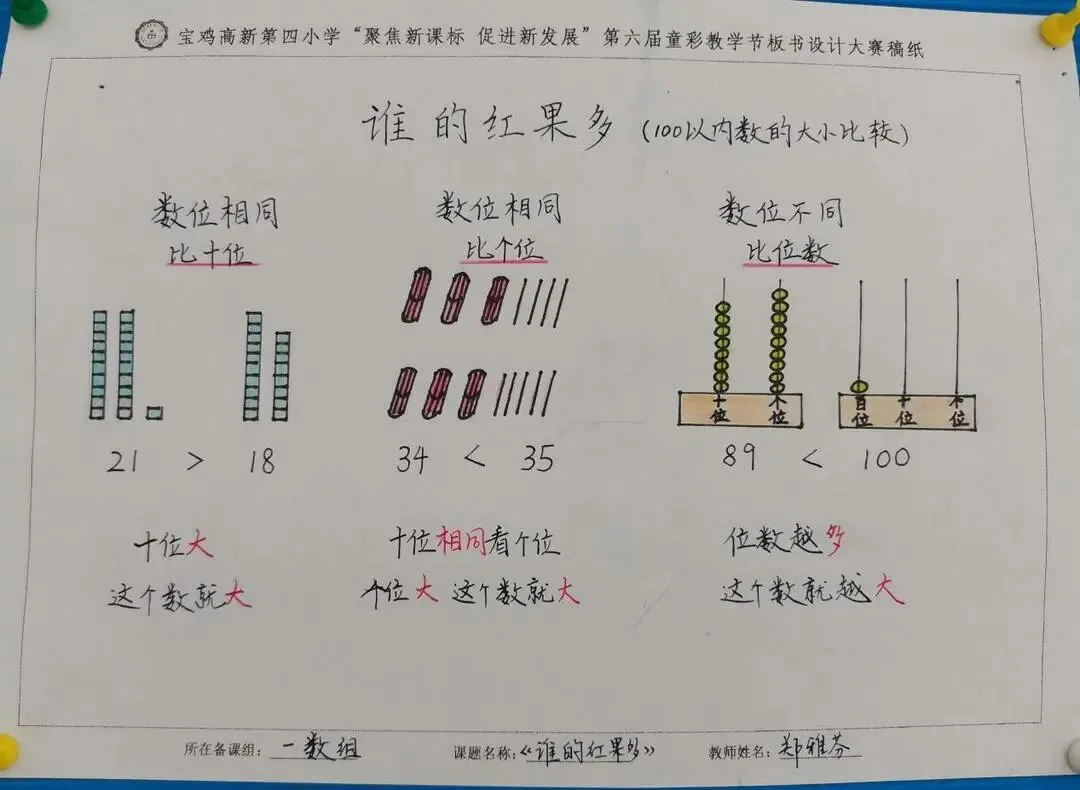 宝鸡高新第四小学“聚焦新课标 促进新发展”第六届童彩教学节板书设计大赛稿纸
谁的红果多(100以内数的大小比较)
数位相同
比十位
数位相同
比个位
数位不同
比位数
十位 个位
百位 十位 个位
21 > 18
34 < 35
89 < 100
十位大
这个数就大
十位相同看个位
个位大 这个数就大
位数越多
这个数就越大
所在备课组: 一数组 课题名称:《谁的红果多》 教师姓名: 郑雅芬